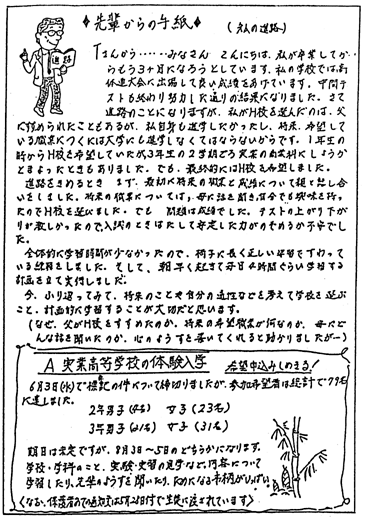 ◆先輩からの手紙◆ (友人の進路)
進路
Tさんから……みなさん こんにちは。私が卒業してか
らもう3ヶ月になろうとしています。私の学校では高
体連大会に出場して良い成績をあげています。中間テ
ストも終わり努力した通りの結果になりました。さて
進路のことになりますが、私がH校を選んだのは、父
にすすめられたこともあるが、私自身も進学したかったし、将来、希望して
いる職業につくには大学にも進学しなくてはならないからです。1年生の
時からH校を希望していたが3年生の2学期ごろ実業の商業科にしようか
とまよったときもありました。でも、最終的にはH校を希望しました。
進路をきめるとき まず、最初に将来の職業と成績について親と話し合
いをしました。将来の職業については、母に話を聞き自分でも興味を持っ
たのでH校を選びました。でも 問題は成績でした。テストの上がり下が
りが激しかったので入試のときはたして安定した力がのぞめるか不安でし
た。
全体的に学習時間が少なかったので、椅子に長く正しい姿勢ですわって
いる練習をしました。そして、朝早く起きて毎日4時間ぐらい学習する
計画を立て実行しました。
今、ふり返ってみて、将来のことや自分の適性などを考えて学校を選ぶ
こと、計画的に学習することが大切だと思います。
(など、父がH校をすすめたのか、将来の希望職業が何なのか、母にど
んな話を聞いたのか、心のようすを書いてくれると助かりましたが―)
A 実業高等学校の体験入学 希望申込みしめきる!
6月3日(水)で標記の件について締切りましたが、参加希望者は総計で79名
に達しました。
2年男子(4名) 女子(23名)
3年男子(21名) 女子(31名)
期日は未定ですが、8月3日〜5日のどちらかになります。
学校・学科のこと、実験・実習の見学など、内容について
学習したり、先輩のようすを聞いたり、ためになる事柄がいっぱい!
〈なお、保護者あての通知文は5月28日付で生徒に渡されています〉